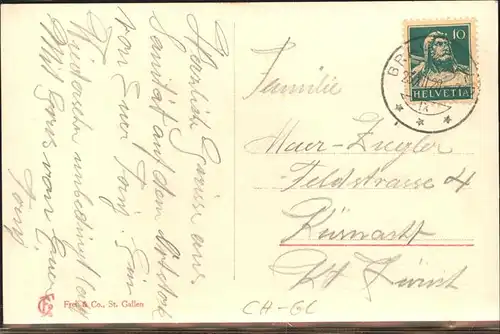 Herzlich Grüsse aus
Sanität auf dem
von Euer Tony. Ein
Wiedersehn unbedingt
Mit Gruss von Euer
Tony
Familie
Maur-Ziegler
Feldstrasse 4
Küsnacht
Kt Zürich
10
HELVETIA
BR
IX
Frei & Co., St. Gallen
CH-GL